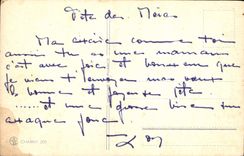 Fête des Mères
Ma chérie comme toi
aussi tu es une maman
c'est avec joie et bonheur que
je viens t'envoyer mes vœux
de bonne et joyeuse fête
...... et une grosse bise sur
chaque joue.